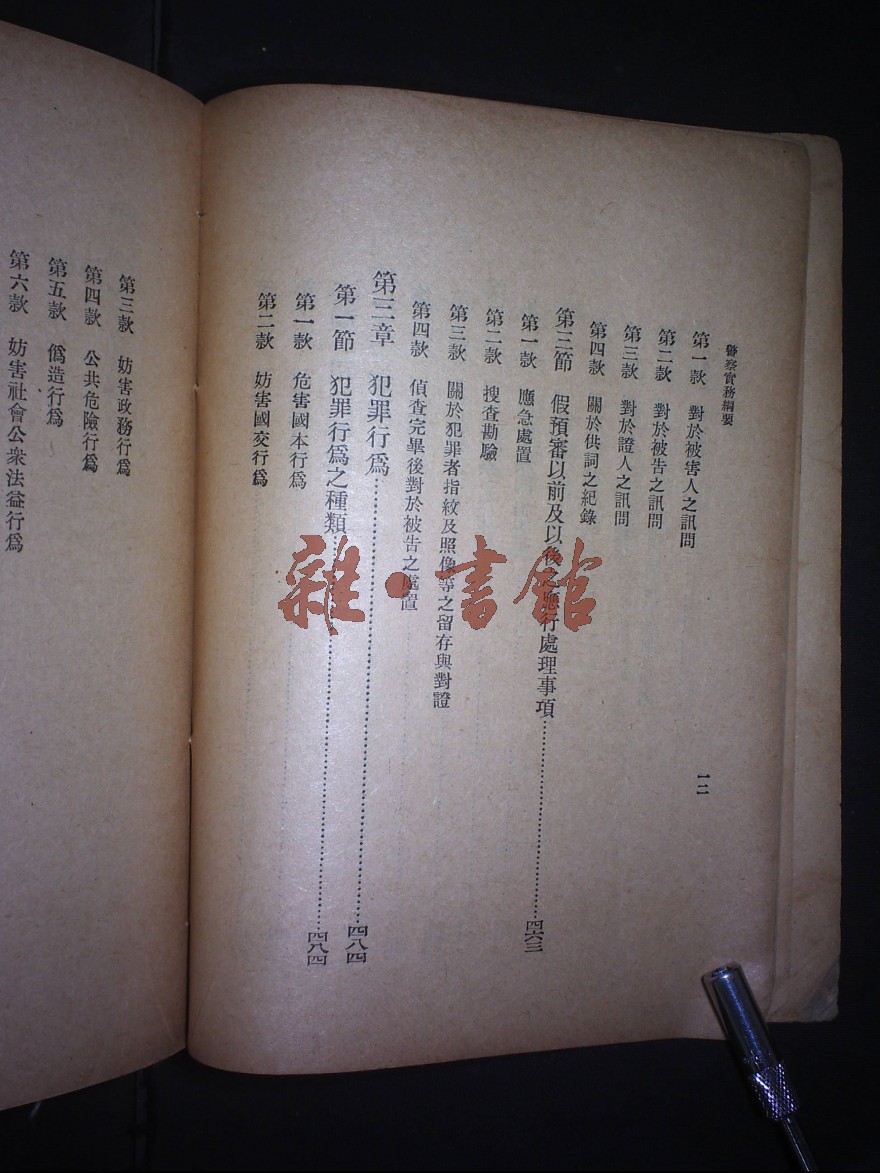 警察實務綱要
一二
第一款 對於被害人之訊問
第二款 對於被告之訊問
第三款 對於證人之訊問
第四款 關於供詞之紀錄
第三節 假預審以前及以後之應行處理事項……四六三
第一款 應急處置
第二款 搜查勘驗
第三款 關於犯罪者指紋及照像等之留存與對證
第四款 偵查完畢後對於被告之處置
第三章 犯罪行爲……四八四
第一節 犯罪行爲之種類……四八四
第一款 危害國本行爲
第二款 妨害國交行爲
第三款 妨害政務行爲
第四款 公共危險行爲
第五款 僞造行爲
第六款 妨害社會公衆法益行爲
雜·書館